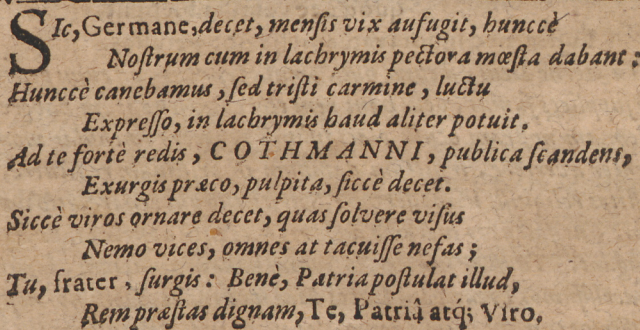 SIc, Germane, decet, mensis vix aufugit, hunccè
Nostrum cum in lachrymis pectora mœsta dabant:
Hunccè canebamus, sed tristi carmine, luctu
Expresso, in lachrymis haud aliter potuit.
Ad te fortè redis, COTHMANNI, publica scandens,
Exurgis præco, pulpita, siccè decet.
Siccè viros ornare decet, quas solvere visus
Nemo vices, omnes at tacuisse nefas;
Tu, frater, surgis: Benè, Patria postulat illud,
Rem præstas dignam, Te, Patriâ atq; Viro.